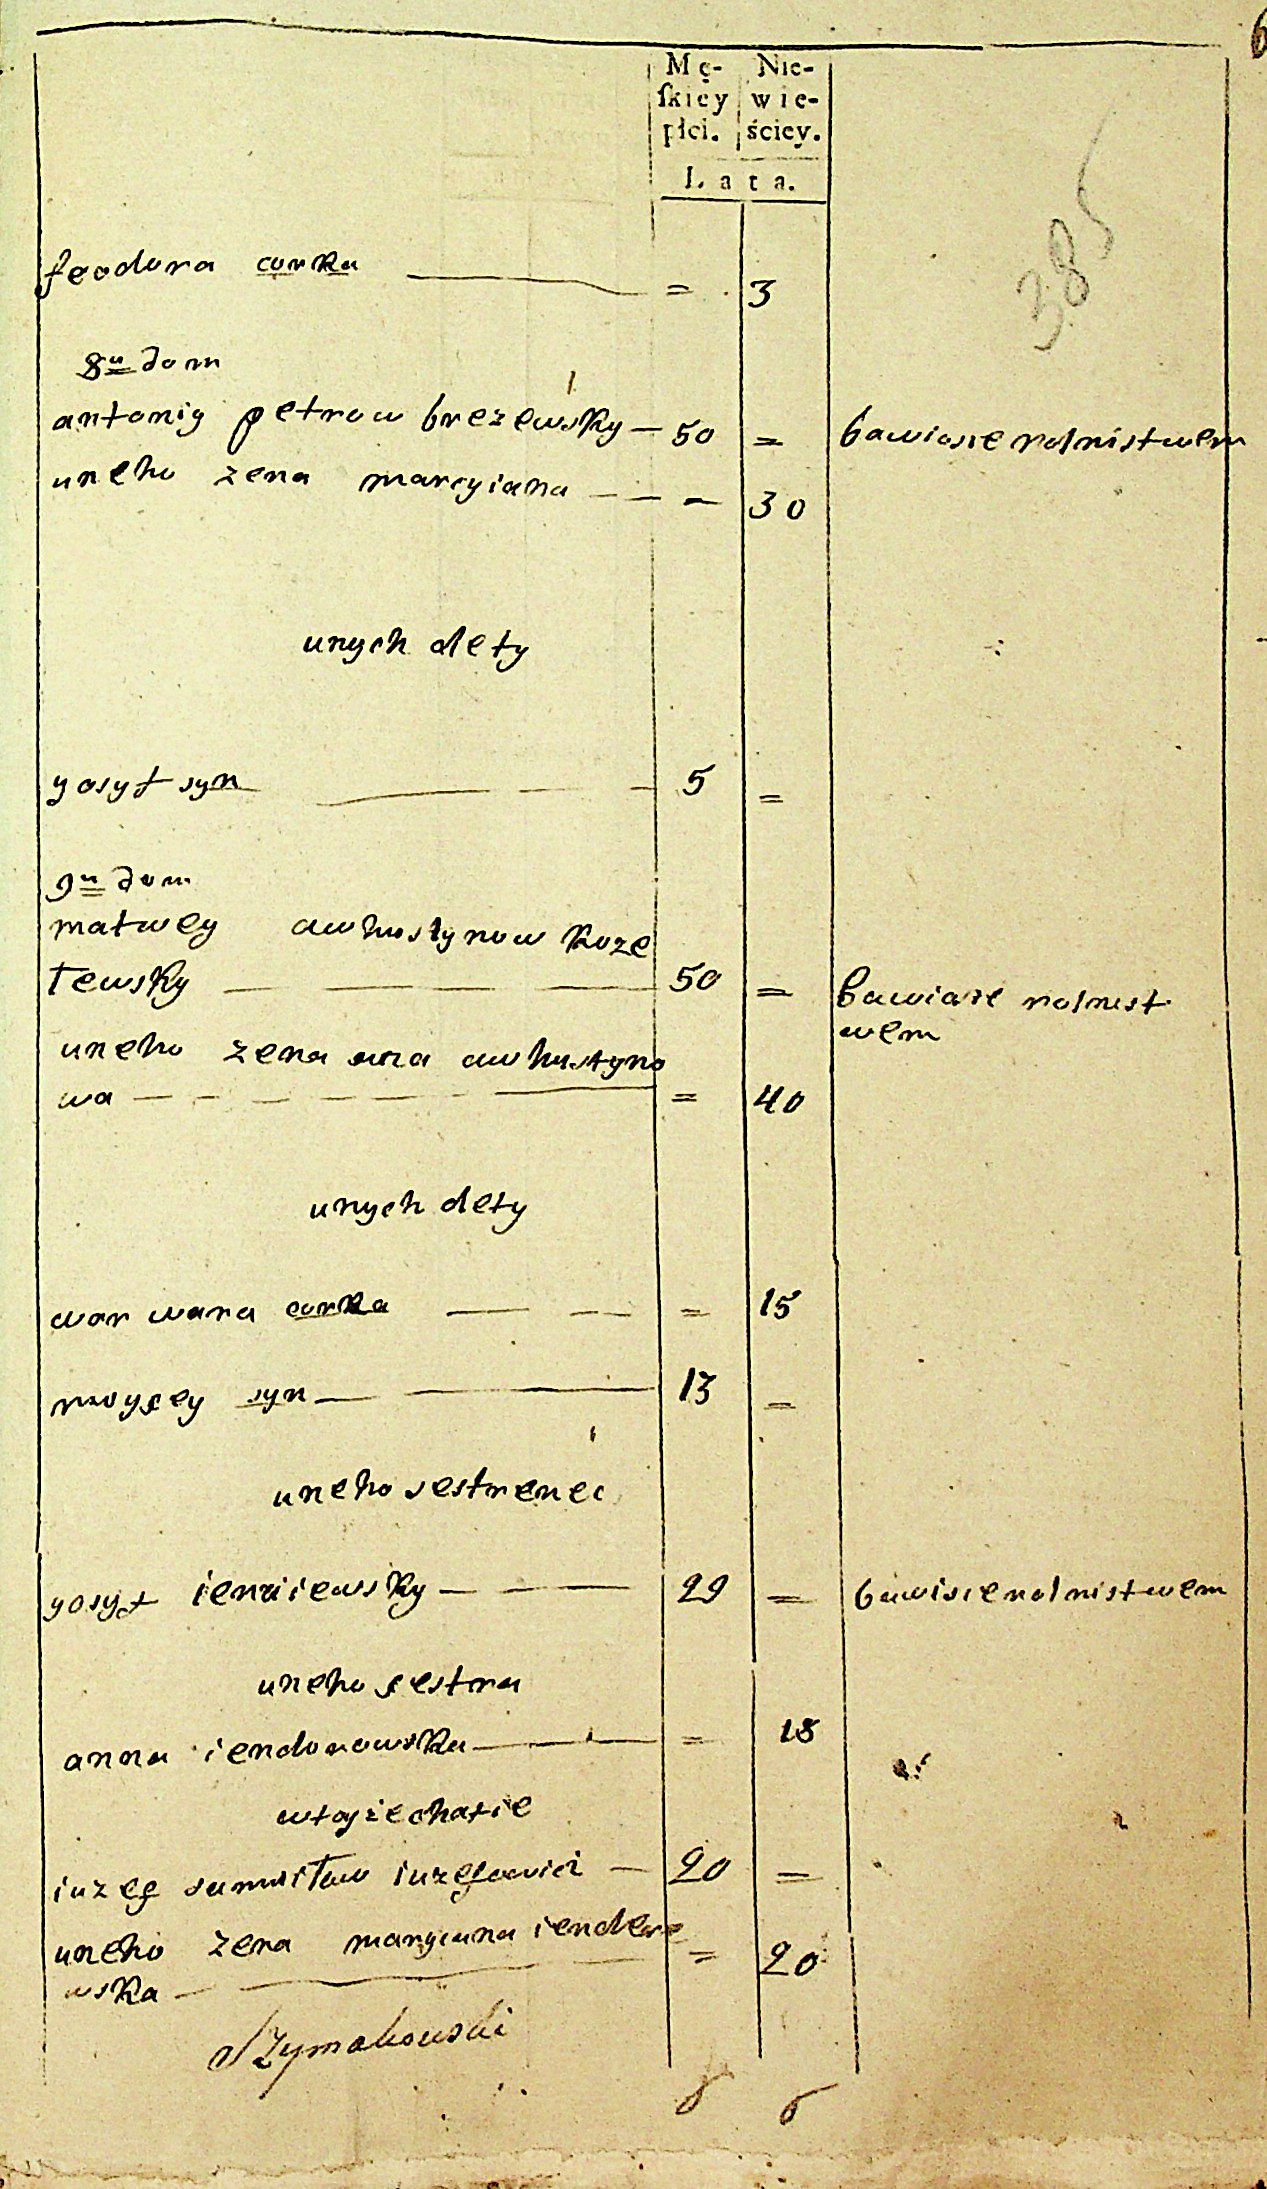 6
Mę- Nie-
ſkiey wie-
płci. ściey.
Lata.
385
feodora corka = 3
8u dom
antoniy petrow brezewsky 50 = bawiasie rolnistwem
uneho zena marcyiana 30
unych dety
yosyf syn 5 =
9u dom
matwey awhustynow koze
lewsky 50 = bawiasie rolnist
wem
uneho zena awhustyno
wa = 40
unych dety
warwara corka = 15
moysey syn 13 =
uneho sestrenec
yosyf 29 = bawisie rolnistwem
uneho sestra
anna iendorowska = 18
iuzef iuzefowicz 20 =
uneho zena maryanna iendere = 20
wska
Szymakowski
8 6